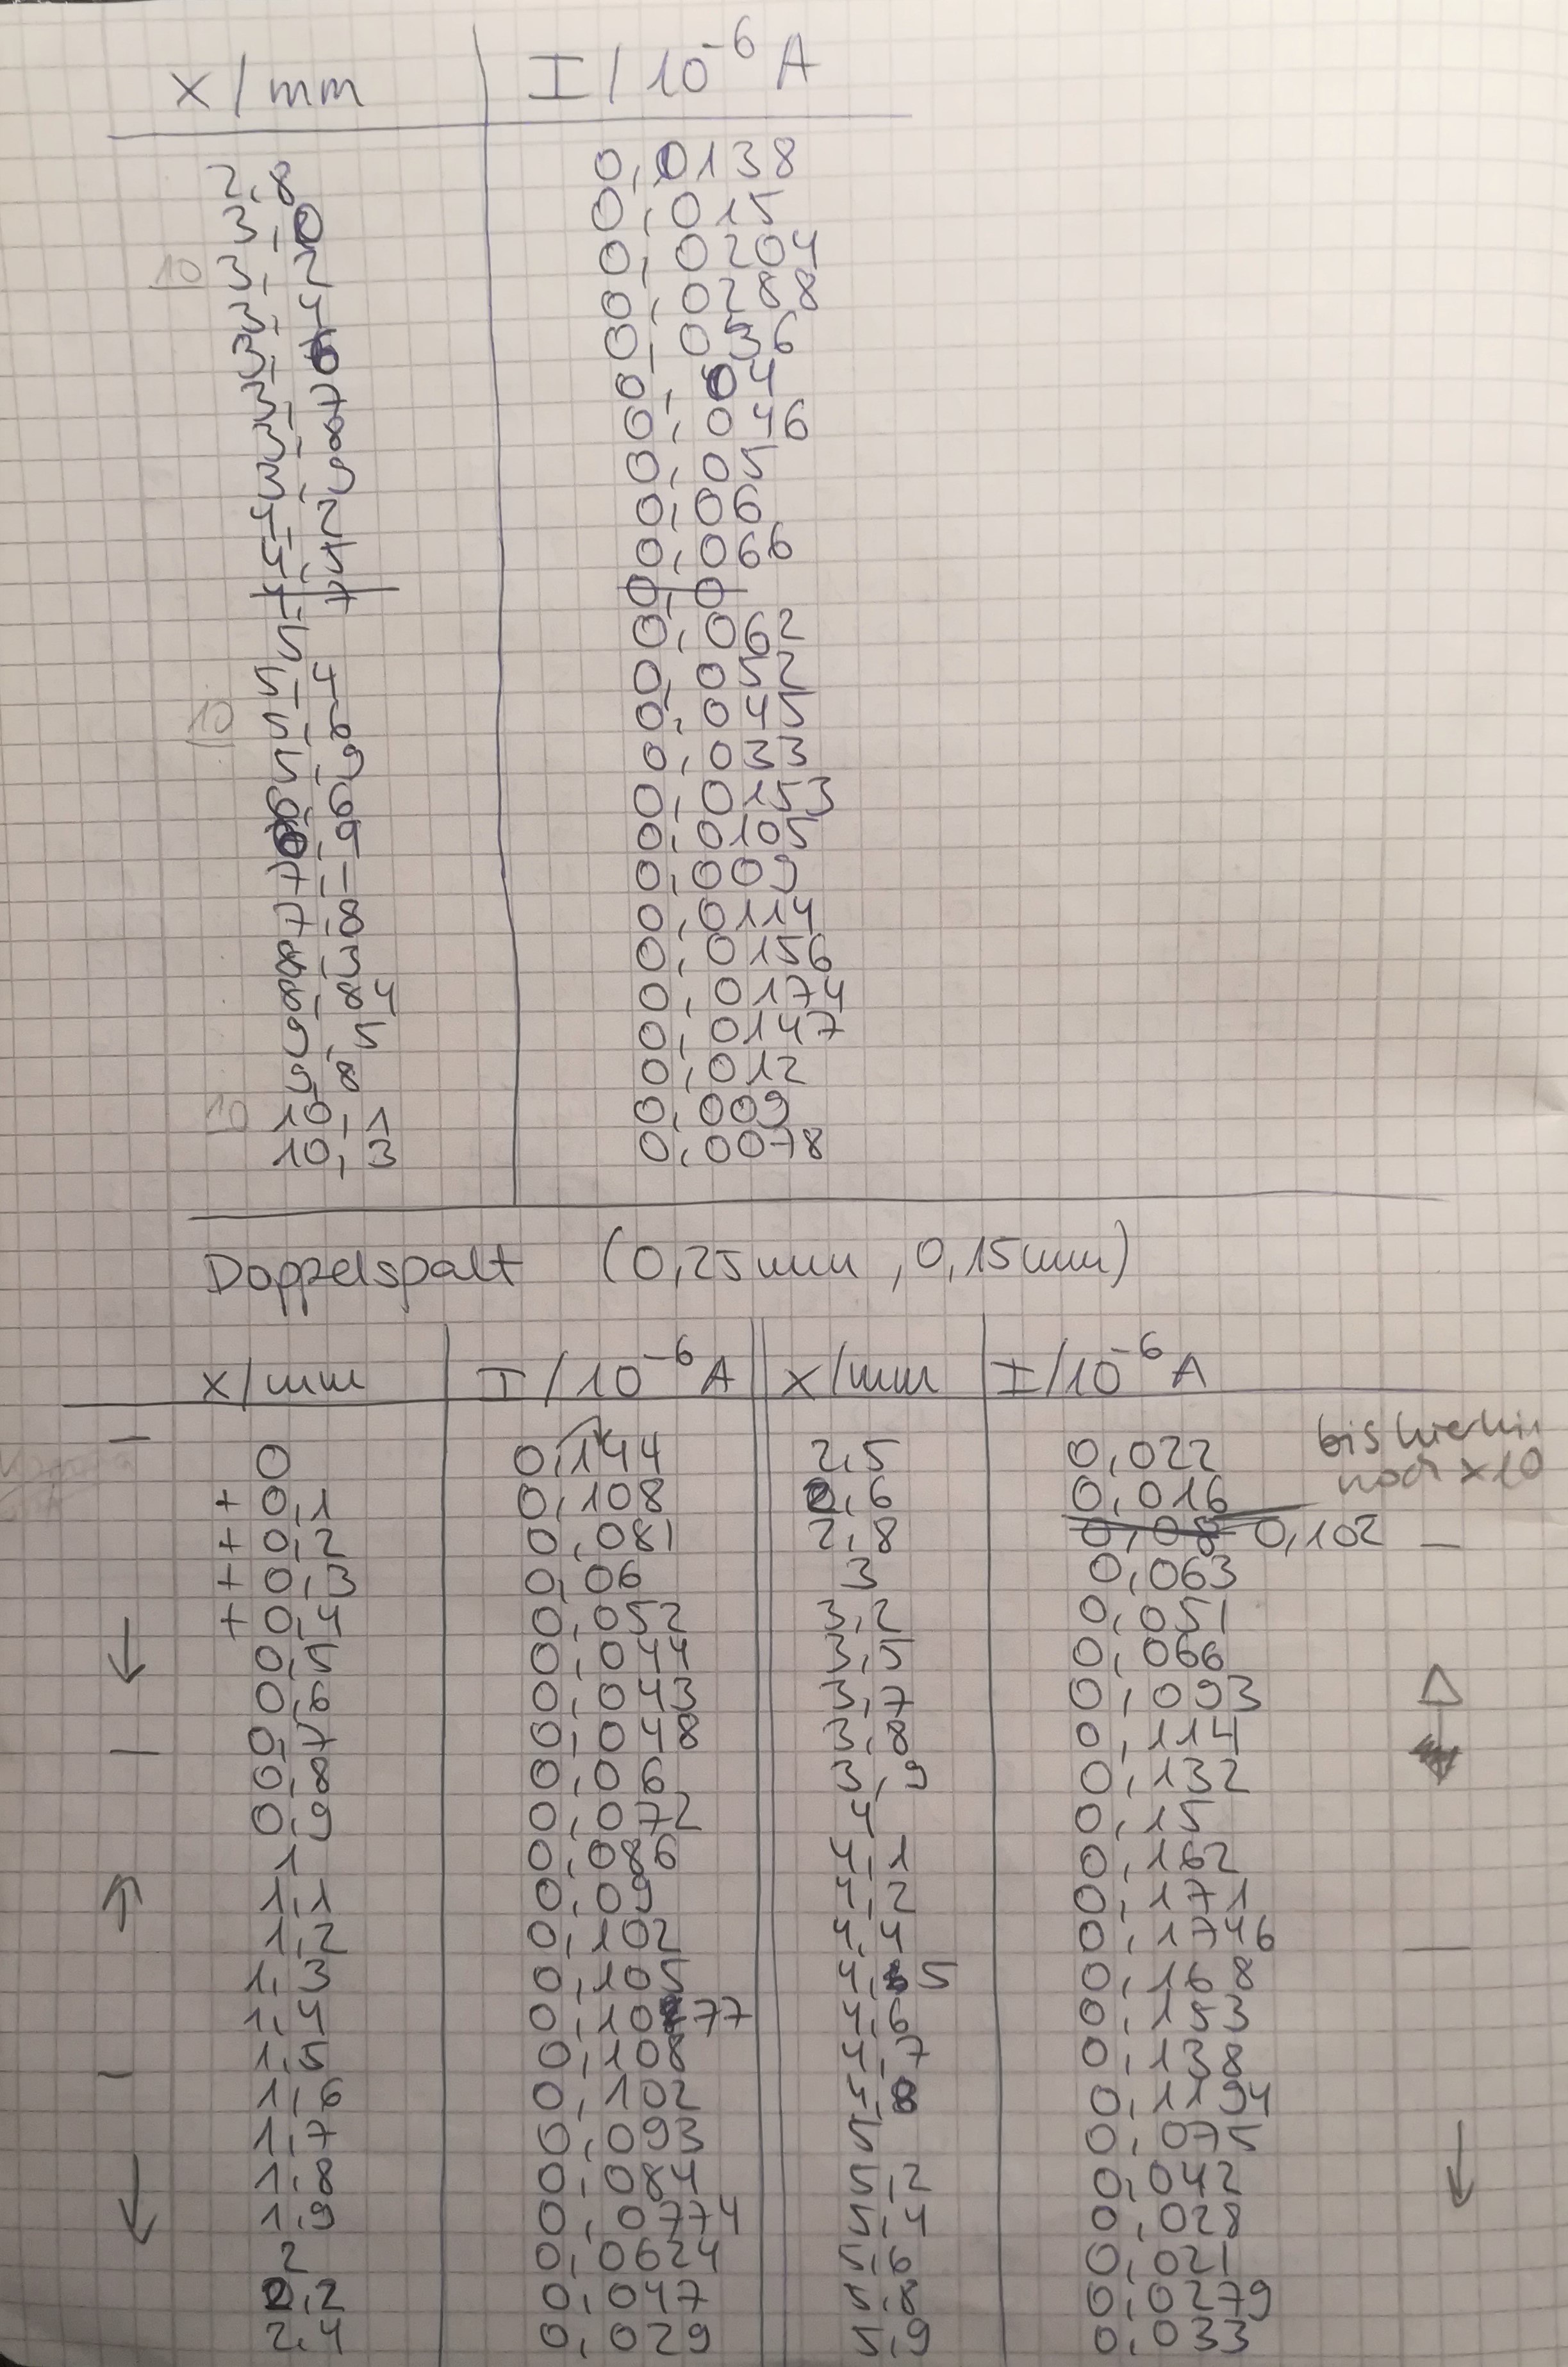 x/mm I/10⁻⁶ A
2,8 0,0138
3,0 0,015
10 3,2 0,0204
3,4 0,0288
3,6 0,036
3,7 0,04
3,8 0,046
3,9 0,05
4,2 0,06
4,5 0,066
4,7 0,0
5 0,062
5,4 0,052
10 5,6 0,045
5,9 0,033
6,6 0,0153
6,9 0,0105
7,1 0,009
7,8 0,0114
8,3 0,0156
8,84 0,0174
9,5 0,0147
9,8 0,012
10 10,1 0,009
10,3 0,0078
Doppelspalt (0,25mm, 0,15mm)
x/mm I/10⁻⁶ A x/mm I/10⁻⁶ A
0 0,144 2,5 0,022 bis hierhin
+ 0,1 0,108 2,6 0,016 noch x10
+ 0,2 0,081 2,8 0,08 0,102
+ 0,3 0,06 3 0,063
+ 0,4 0,052 3,2 0,051
0,5 0,044 3,5 0,066
0,6 0,043 3,7 0,093
0,7 0,048 3,8 0,114
0,8 0,06 3,9 0,132
0,9 0,072 4 0,15
1 0,086 4,1 0,162
1,1 0,09 4,2 0,171
1,2 0,102 4,4 0,1746
1,3 0,105 4,5 0,168
1,4 0,1077 4,6 0,153
1,5 0,108 4,7 0,138
1,6 0,102 4,8 0,1194
1,7 0,093 5 0,075
1,8 0,084 5,2 0,042
1,9 0,0774 5,4 0,028
2 0,0624 5,6 0,021
2,2 0,047 5,8 0,0279
2,4 0,029 5,9 0,033